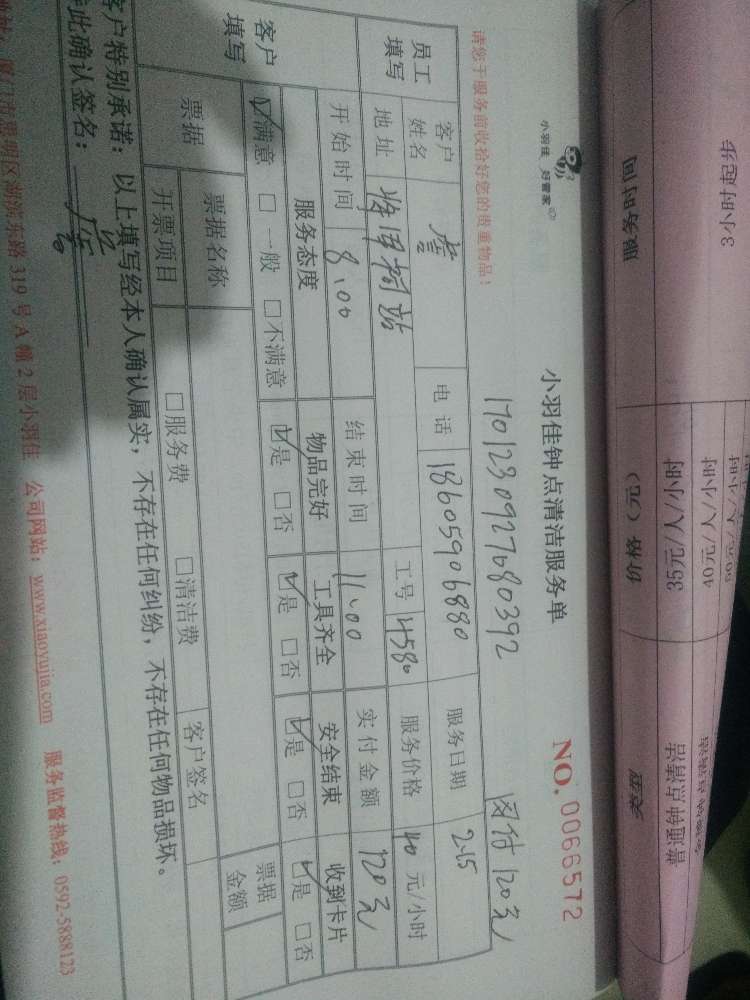 3小时起步
服务时间
价格（元）
类型
35元/人/小时
普通钟点清洁
40元/人/小时
小羽佳 好管家
小羽佳钟点清洁服务单
NO. 0066572
请您于服务前收拾好您的贵重物品！
1701230927080392
网付120元
员工填写
客户姓名
詹
电话
18605906880
服务日期
2.15
地址
工号
4580
服务价格
40元/小时
开始时间
8:00
结束时间
11:00
实付金额
120元
客户填写
服务态度
物品完好
工具齐全
安全结束
收到卡片
☑满意 □一般 □不满意
☑是 □否
☑是 □否
☑是 □否
☑是 □否
票据
票据名称
客户签名
票据金额
开票项目
□服务费
□清洁费
客户特别承诺：以上填写经本人确认属实，不存在任何纠纷，不存在任何物品损坏。
此确认签名：
厦门市思明区湖滨东路319号A幢2层小羽佳 公司网站：www.xiaoyujia.com 服务监督热线：0592-5888123